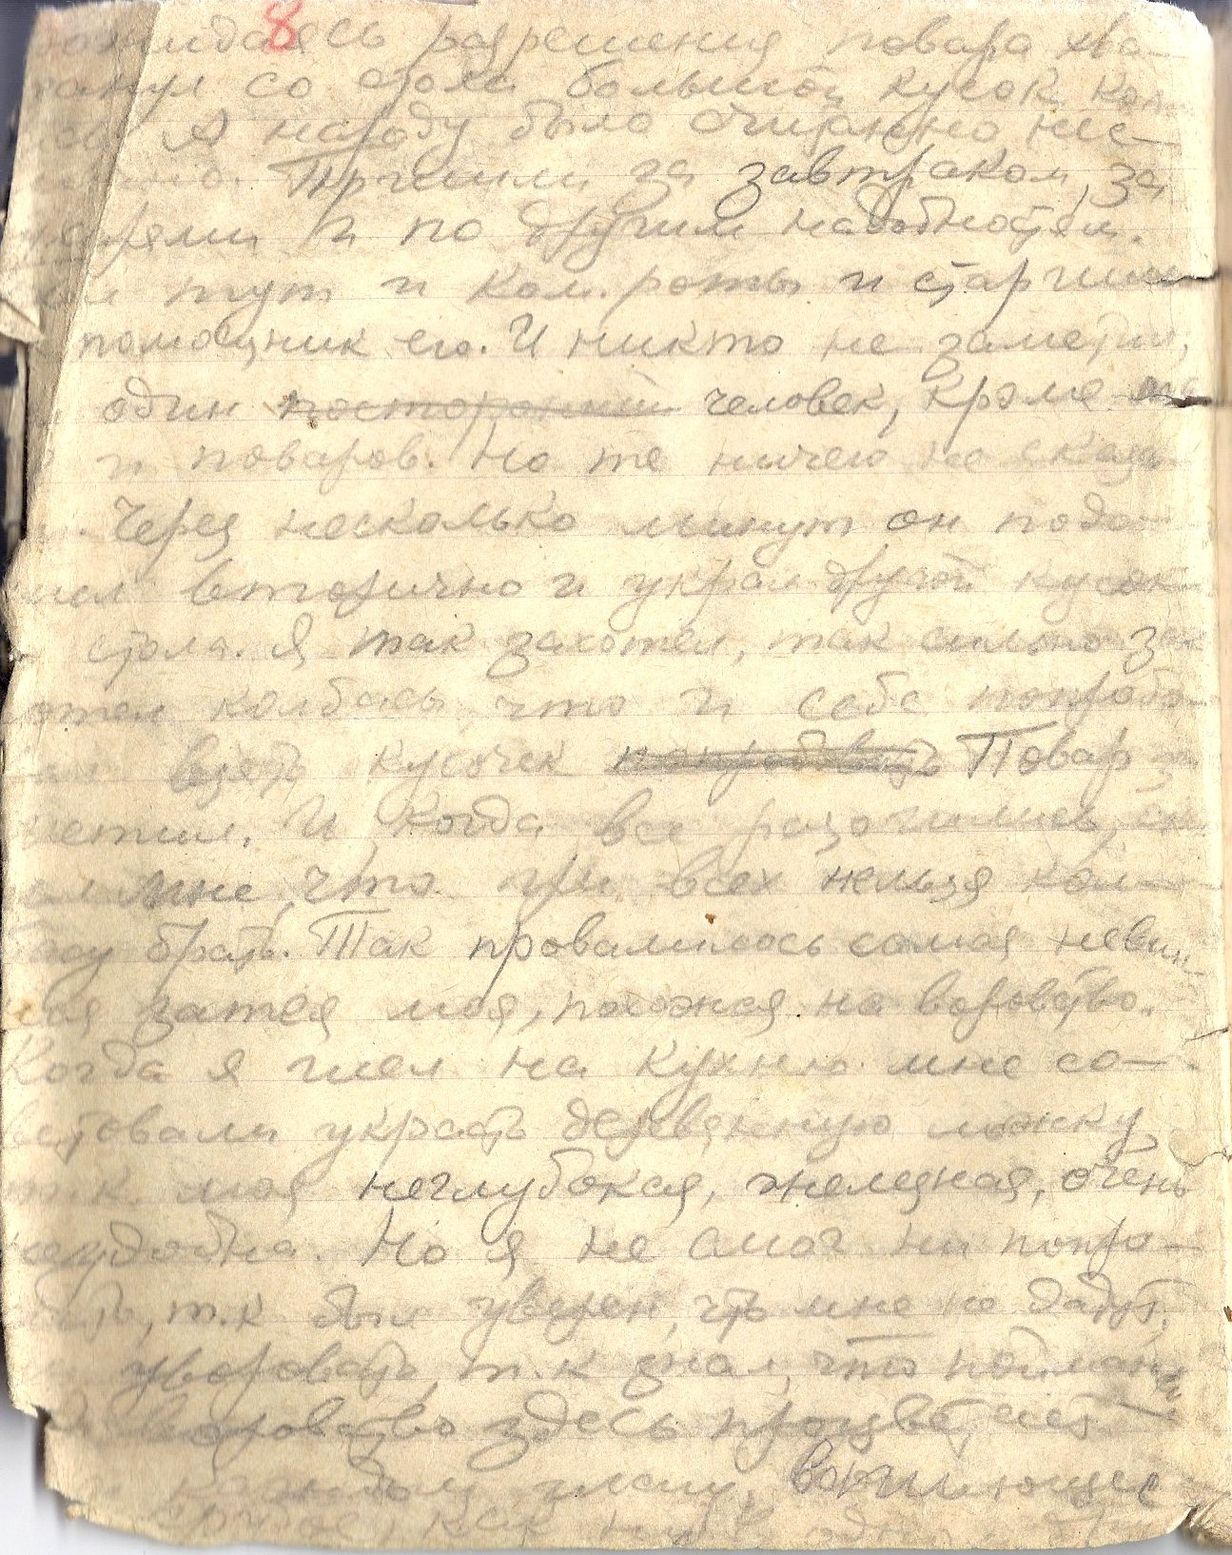 8
дожидаясь разрешения повара хва-
танул со стола большой кусок кол-
А народу было очищенно нес-
Пришли за завтраком, за
и по другим надобностям.
тут и ком. роты и старший
помощник его. И никто не заметил,
один посторонний человек, кроме
и поваров. Но те ничего не сказа-
Через несколько минут он подо-
шел вторично и украл другой кусок
стола. Я так захотел, так сильно зах
отел колбасы, что и себе попробо-
вал взять кусочек попробовать Повар за
метил. И когда все разошлись,
мне, что при всех нельзя кол-
басу брать. Так провалилось самая невин-
ная затея моя, похожая на воровство.
Когда я шел на кухню мне со-
ветовали украсть деревянную ложку
т.к моя неглубокая, железная, очень
неудобна. Но я не смог ни попро-
сить, т.к был уверен, что мне не дадут,
уворовать, т.к знал, что поймают
воровство здесь процветает
вопиющее
как